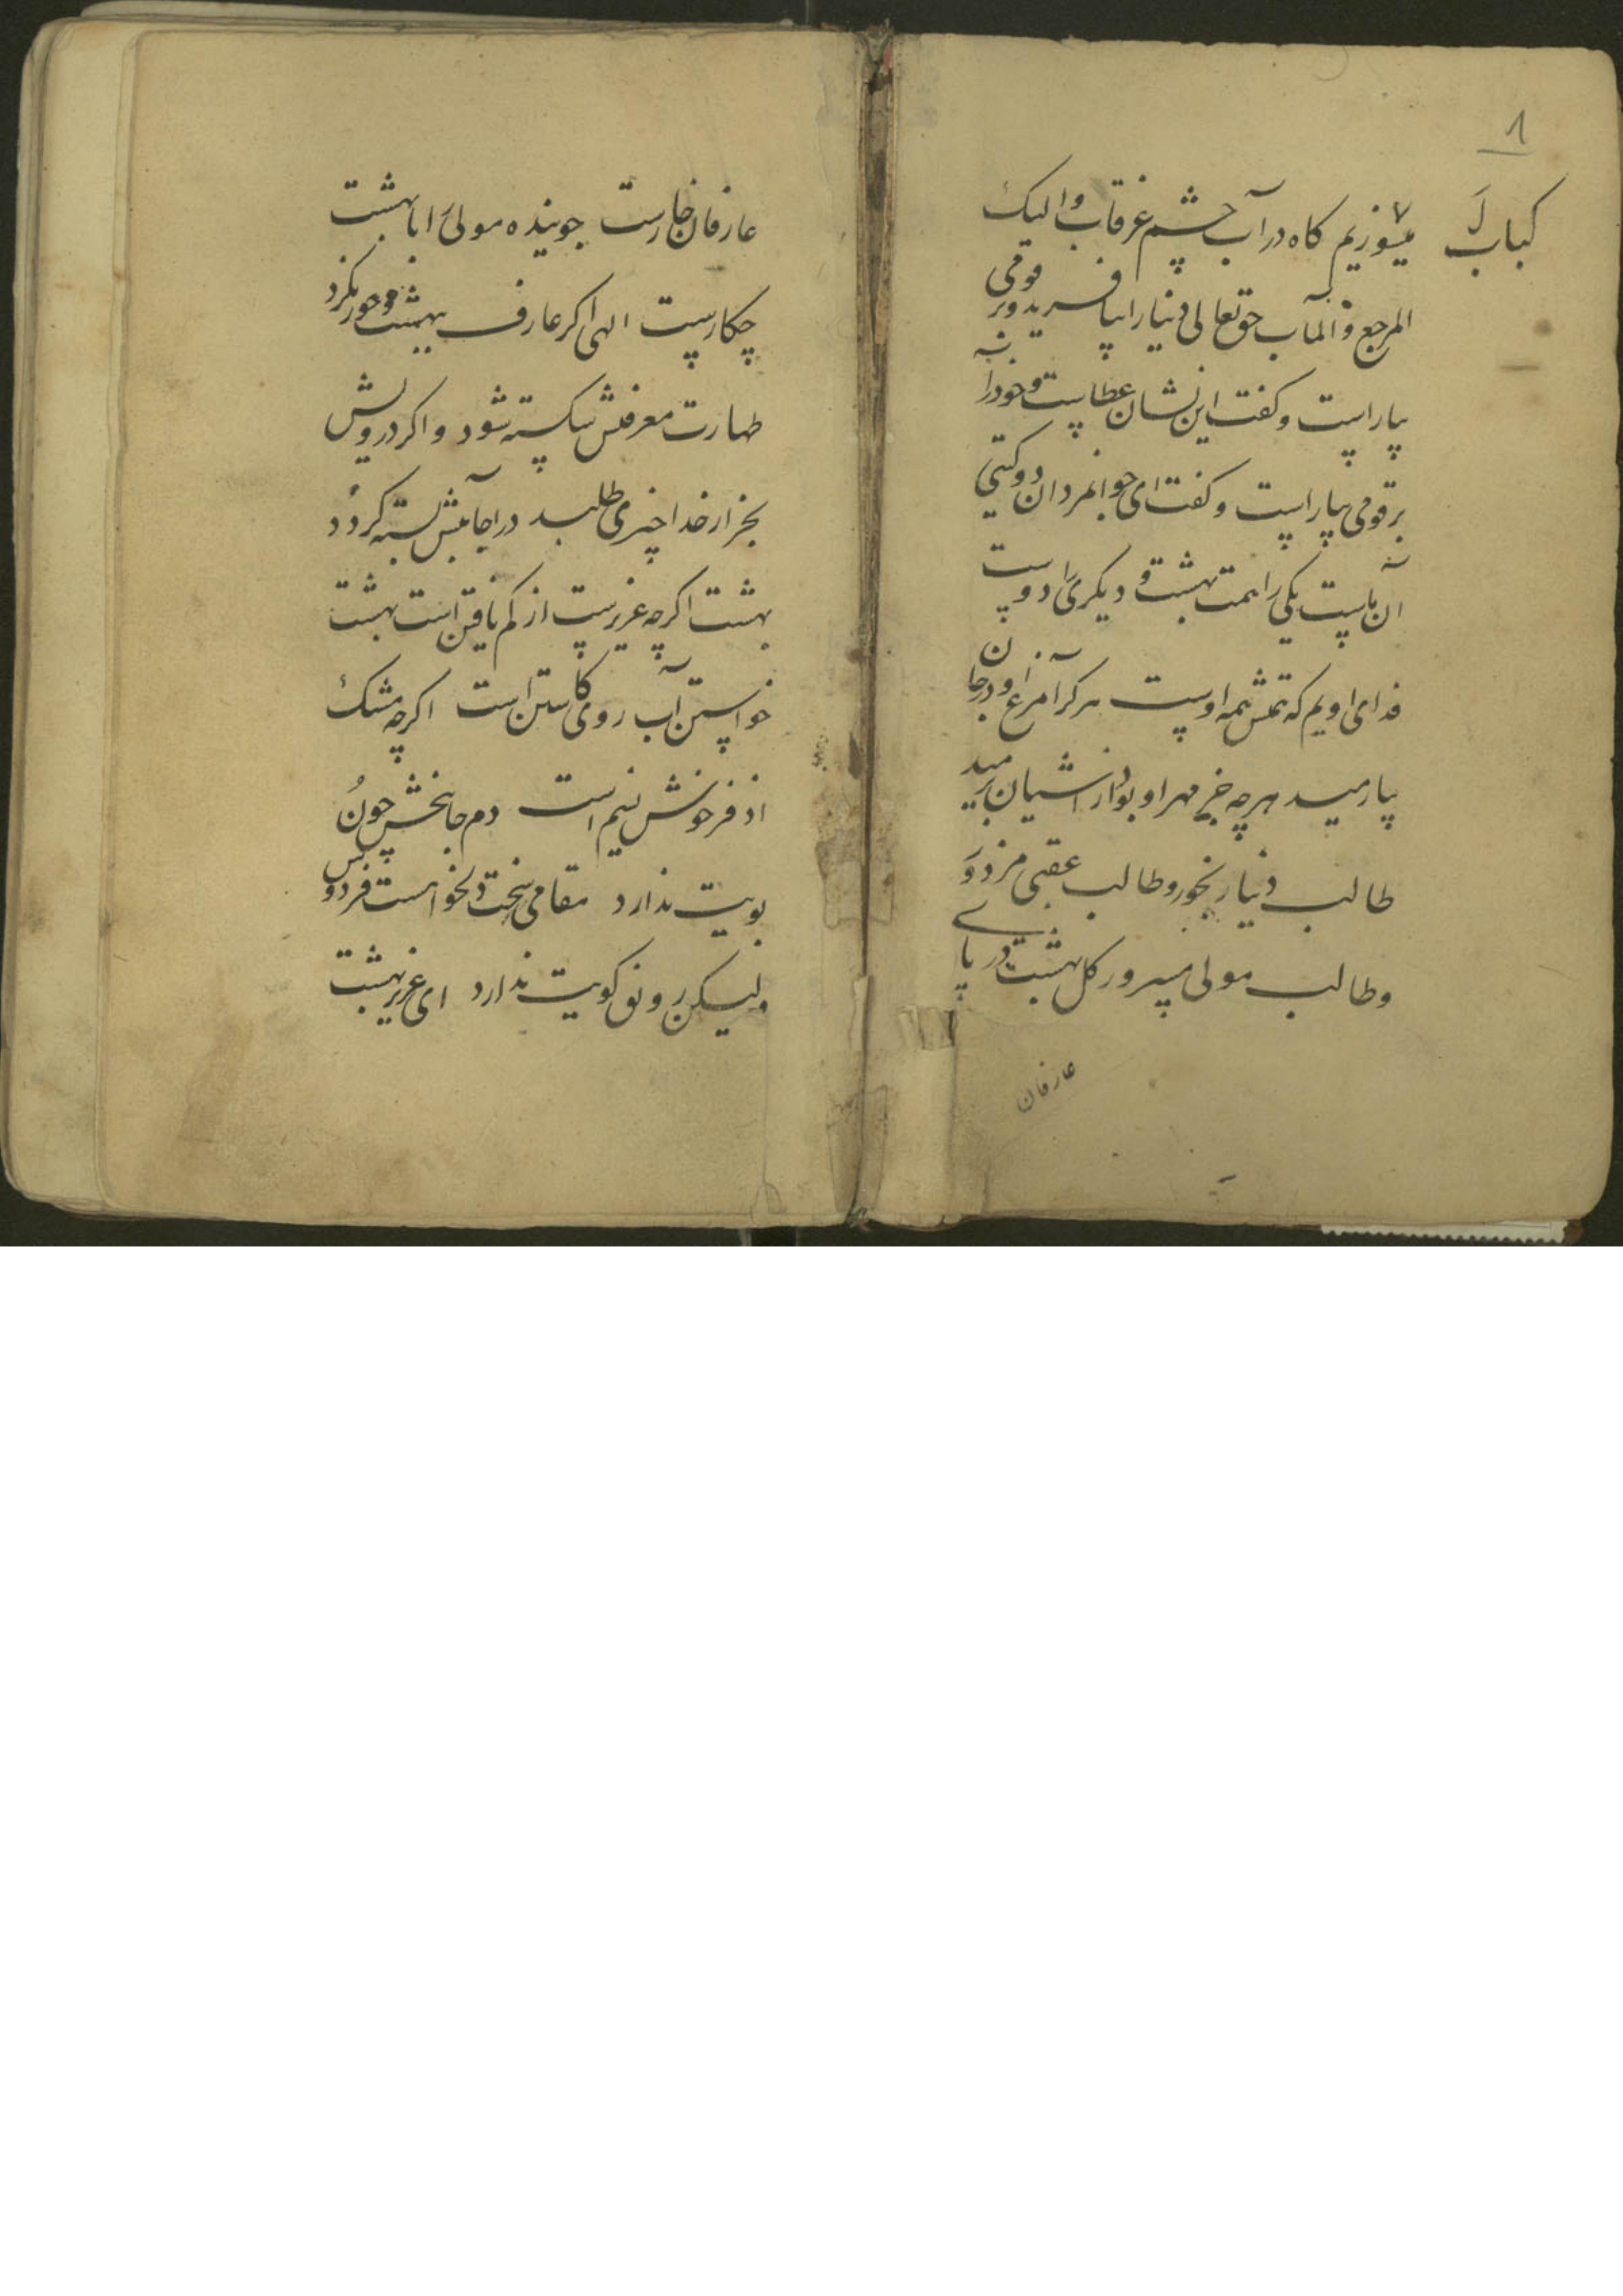 ۱
کباب
میسوزیم کاه در آب چشم غرقاب والیک
المرجع والمآب حق تعالی دنیا را بیافرید و بر قومی
بیاراست و کفت این نشان عطاست و خود را
بر قومی بیاراست و کفت ای جوانمردان دوکیتی
آن ماست یکی را همت بهشت و دیکری را دوست
فدای اویم که همتش همه اوست هر کرا مرغ او در جان
بیارمید هر چه جز مهر او بود از آشیان برمید
طالب دنیا رنجور و طالب عقبی مزدور
و طالب مولی مسرور کل بهشت در پای
عارفان
عارفان خارست جوینده مولی را با بهشت
چکارست الهی اکر عارف ببهشت و حور نکرد
طهارت معرفتش شکسته شود و اکر درویش
بجز از خدا چیزی طلبد در اجابتش بسته کردد
بهشت اکرچه عزیزست از کم یافتن است بهشت
خواستن آب روی کاستن است اکرچه مشک
اذفر خوش نسیم است دم جان بخش چون
بویت ندارد مقامی سخت دلخواهست فردوس
ولیکن رونق کویت ندارد ای عزیز بهشت